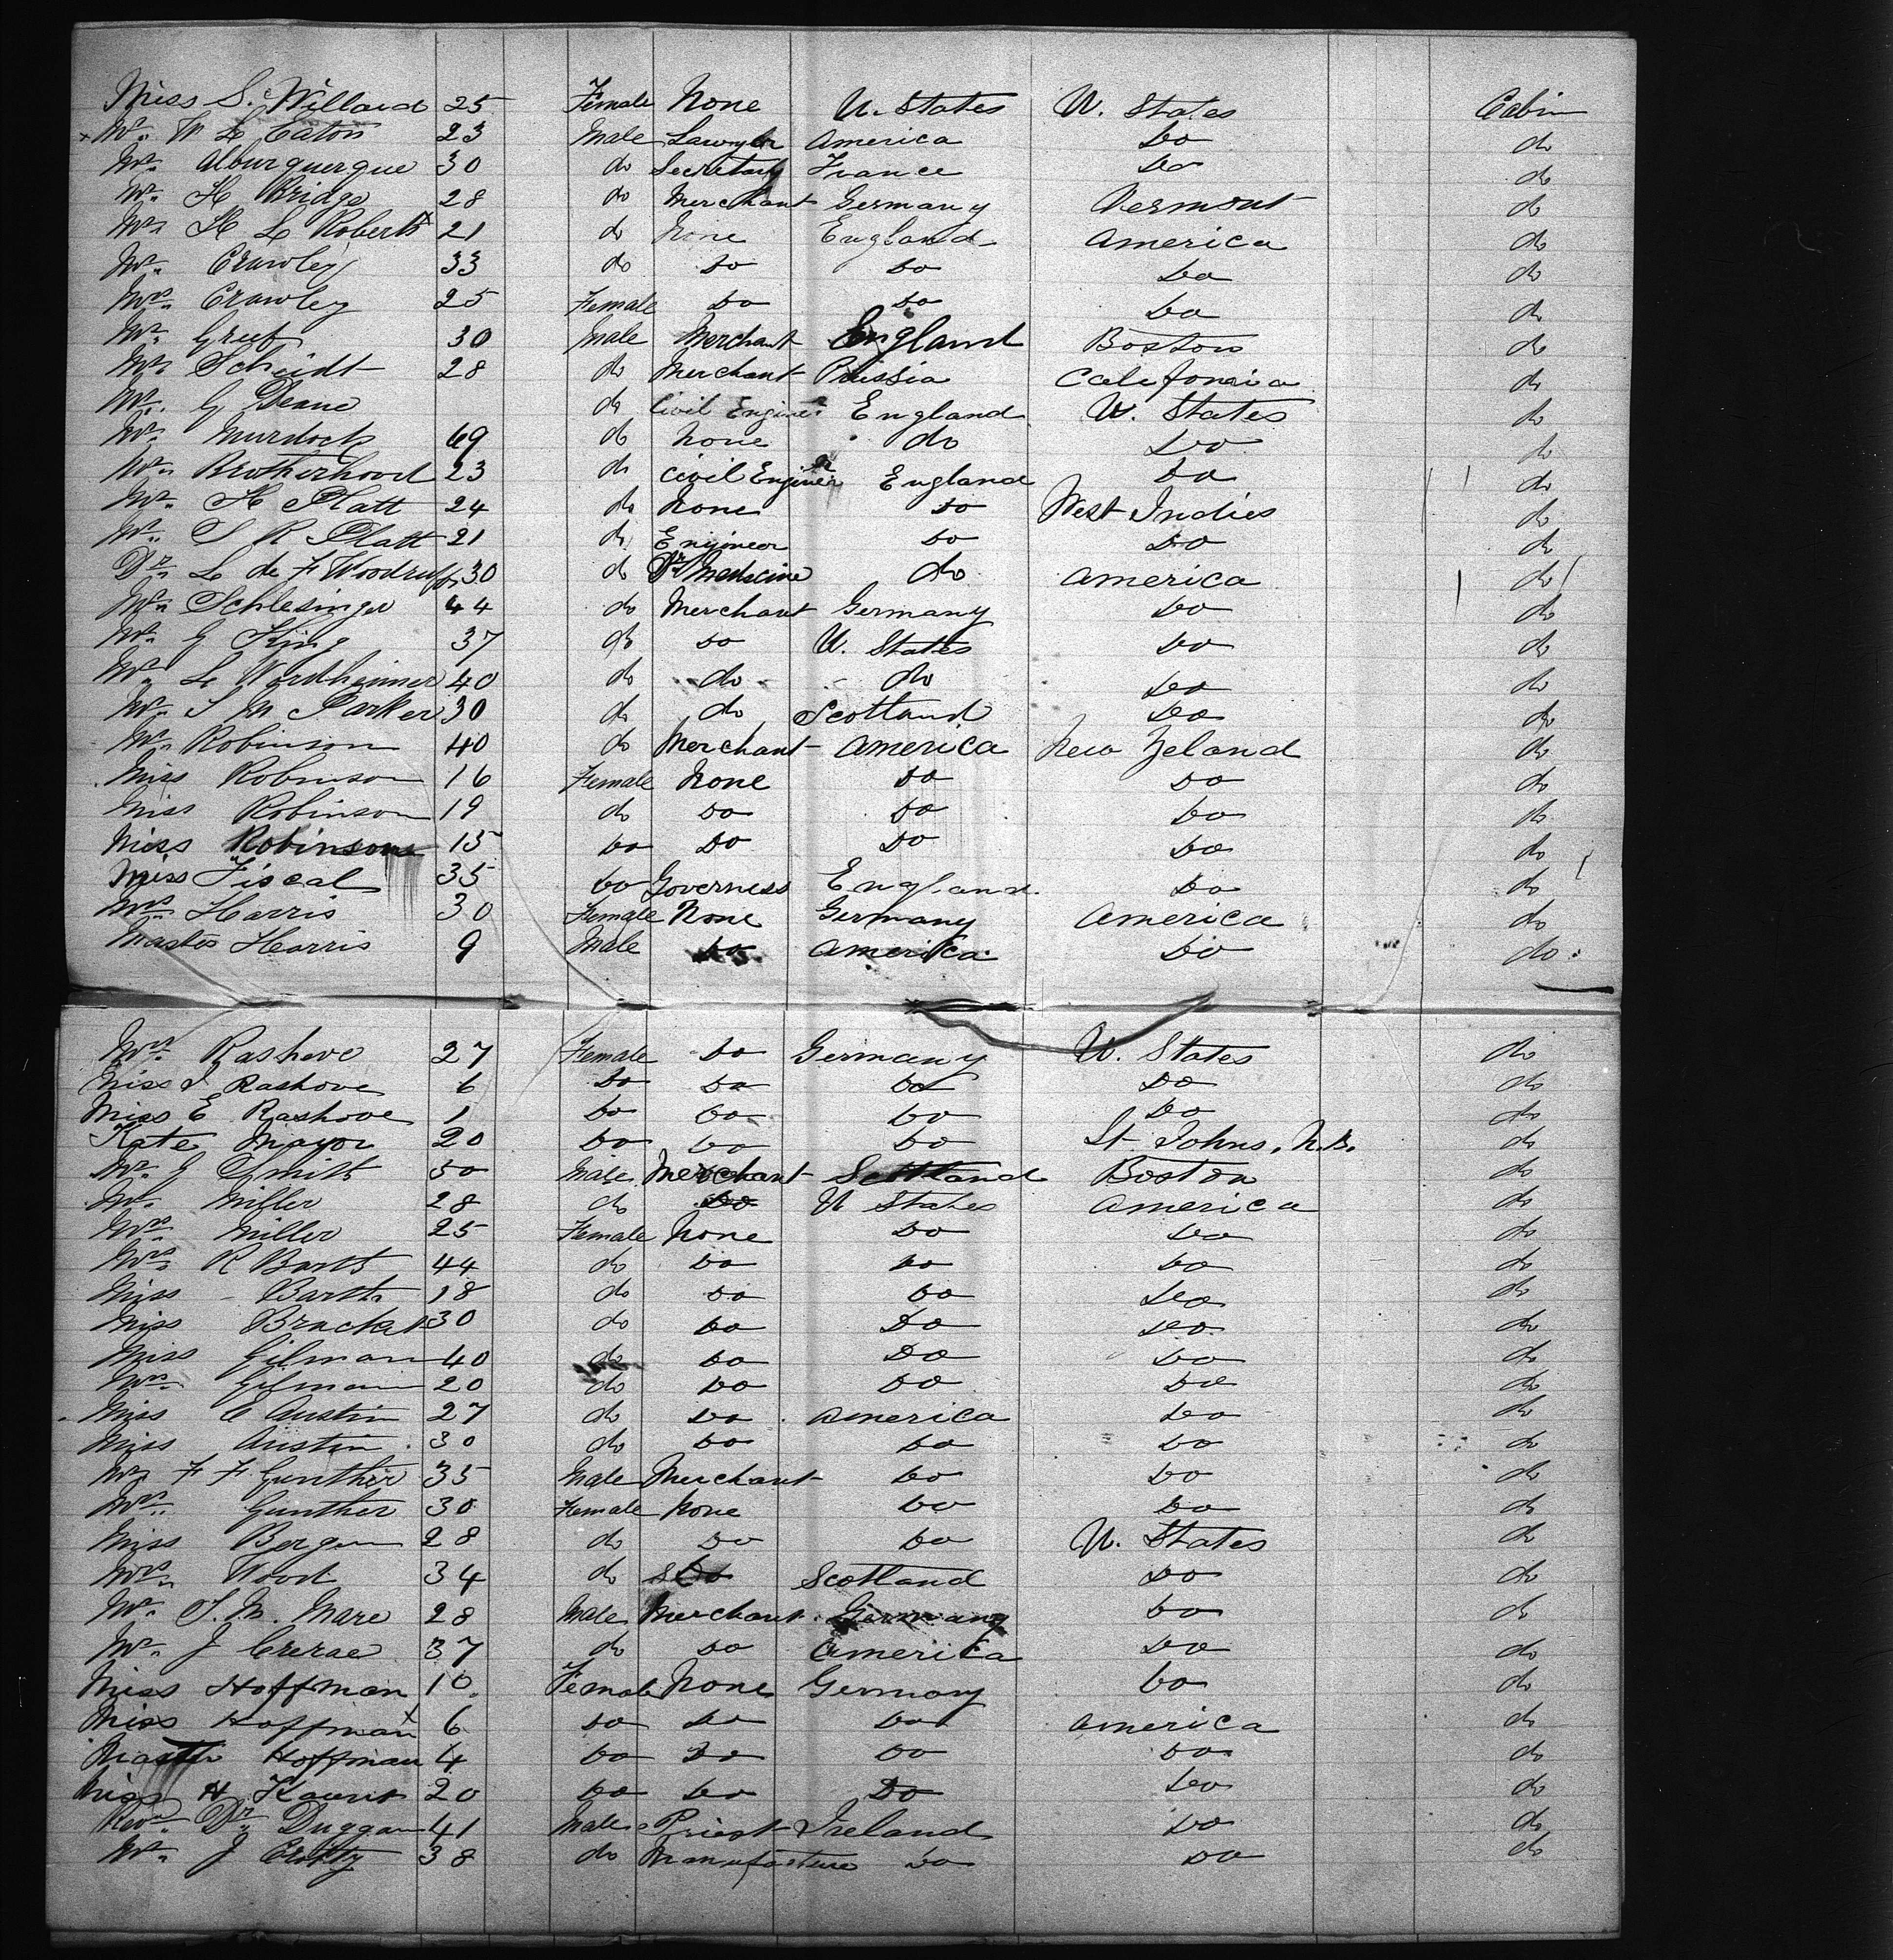 Miss S. Willard 25 Female None U. States U. States Cabin
Mr. W L Eaton 23 Male Lawyer America Do do
Mr. Alburquerque 30 do Secretary France Do do
Mr. H Bridge 28 do Merchant Germany Vermont do
Mr. H L Roberts 21 do None England America do
Mr. Crawley 33 do Do Do Do do
Mrs. Crawley 25 Female Do Do Do do
Mr. Greef 30 Male Merchant England Boston do
Mr. Scheidt 28 do Merchant Prussia Califonria do
Mr. G Deane do Civil Engineer England U. States do
Mr. Murdock 69 do None do Do do
Mr. Brotherhood 23 do Civil Engineer England Do do
Mr. H Platt 24 do None Do West Indies do
Mr. S R Platt 21 do Engineer Do Do do
Dr. L de F Woodruff 30 do Dr Medecine do America do
Mr. Schlesinger 44 do Merchant Germany Do do
Mr. G King 37 do Do U. States Do do
Mr. L Wordheimer 40 do do do Do do
Mr. S M Parker 30 do do Scotland Do do
Mr. Robinson 40 do Merchant America New Zeland do
Miss Robinson 16 Female None Do Do do
Miss Robinson 19 do Do Do Do do
Miss Robinson 15 Do Do Do Do do
Miss Fiscal 35 Do Governess England Do do
Mrs. Harris 30 Female None Germany America do
Master Harris 9 Male Do America Do do
Mrs. Rashove 27 Female Do Germany U. States do
Miss I Rashove 6 Do Do Do Do do
Miss E Rashove 1 Do Do Do Do do
Kate Mayor 20 Do Do Do St Johns, N.B. do
Mr. G Smith 50 Male Merchant Scotland Boston do
Mr. Miller 28 do Do U States America do
Mrs. Miller 25 Female None Do Do do
Mrs. R Barth 44 do Do Do Do do
Miss Barth 18 do Do Do Do do
Miss Bracket 30 do Do Do Do do
Miss Gilman 40 do Do Do Do do
Mrs. Gilman 20 do Do Do Do do
Miss C Austin 27 do Do America Do do
Miss Austin 30 do Do Do Do do
Mr. F F Gunther 35 Male Merchant Do Do do
Mrs. Gunther 30 Female None Do Do do
Miss Bergen 28 do Do Do U. States do
Mrs. Wood 34 do Do Scotland Do do
Mr. S. M. Mare 28 Male Merchant Germany Do do
Mr. J Crerae 37 do Do America Do do
Miss Hoffman 10 Female None Germany Do do
Miss Hoffman 6 Do Do Do America do
Master Hoffman 4 Do Do Do Do do
Miss H 20 Do Do Do Do do
Revd. Dr. Duggan 41 Male Priest Ireland Do do
Mr. J Crotty 38 do Manufacture Do Do do